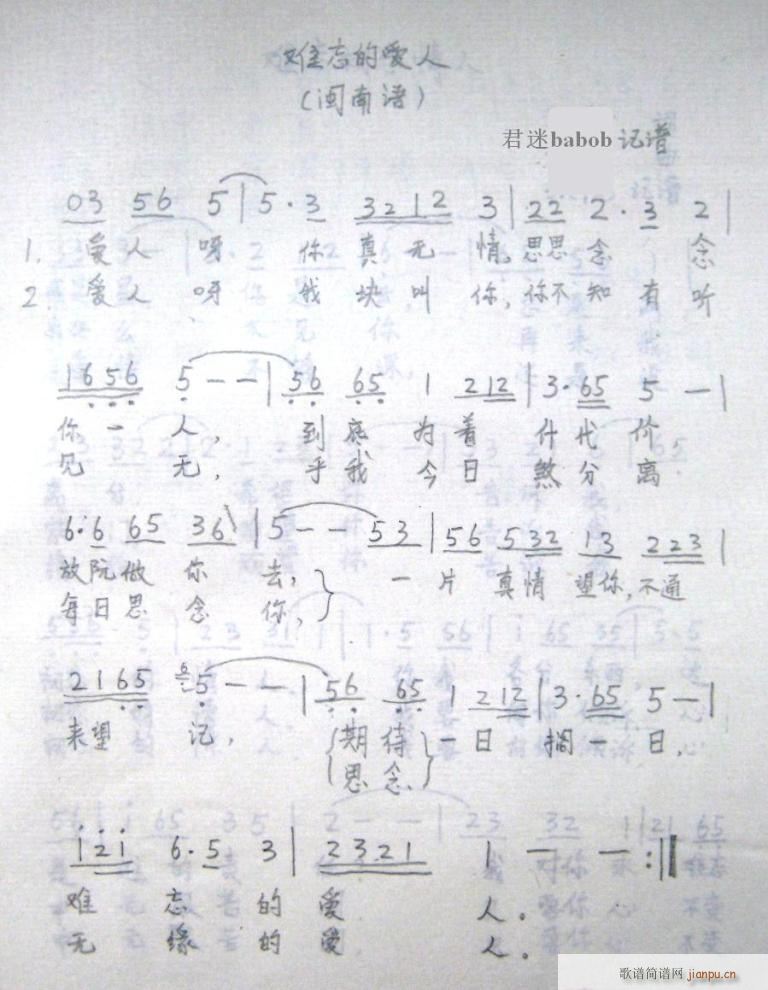 难忘的爱人
（闽南语）
君迷babob 记谱
03 56 5 | 5 · 3 3212 3 | 22 2 · 3 2 |
1. 爱人 呀 你 真 无 情, 思思 念 念
2. 爱人 呀 我 块 叫 你, 你不 知 有 听
1656 5 - - | 56 65 1 212 | 3 · 65 5 - |
你 一 人, 到 底 为 着 什 代 价
见 无, 乎 我 今 日 煞 分 离
6·6 65 36 | 5 - - 53 | 56 532 13 223 |
放阮做 你 去, 一 片 真情 望你, 不通
每日思 念 你,
2165 5 - - | 56 65 1 212 | 3 · 65 5 - |
来望 记, {期待} 一 日 搁 一 日,
{思念}
121 6·5 3 | 2321 1 - - :||
难 忘 的 爱 人。
无 缘 的 爱 人。
歌谱简谱网 jianpu.cn